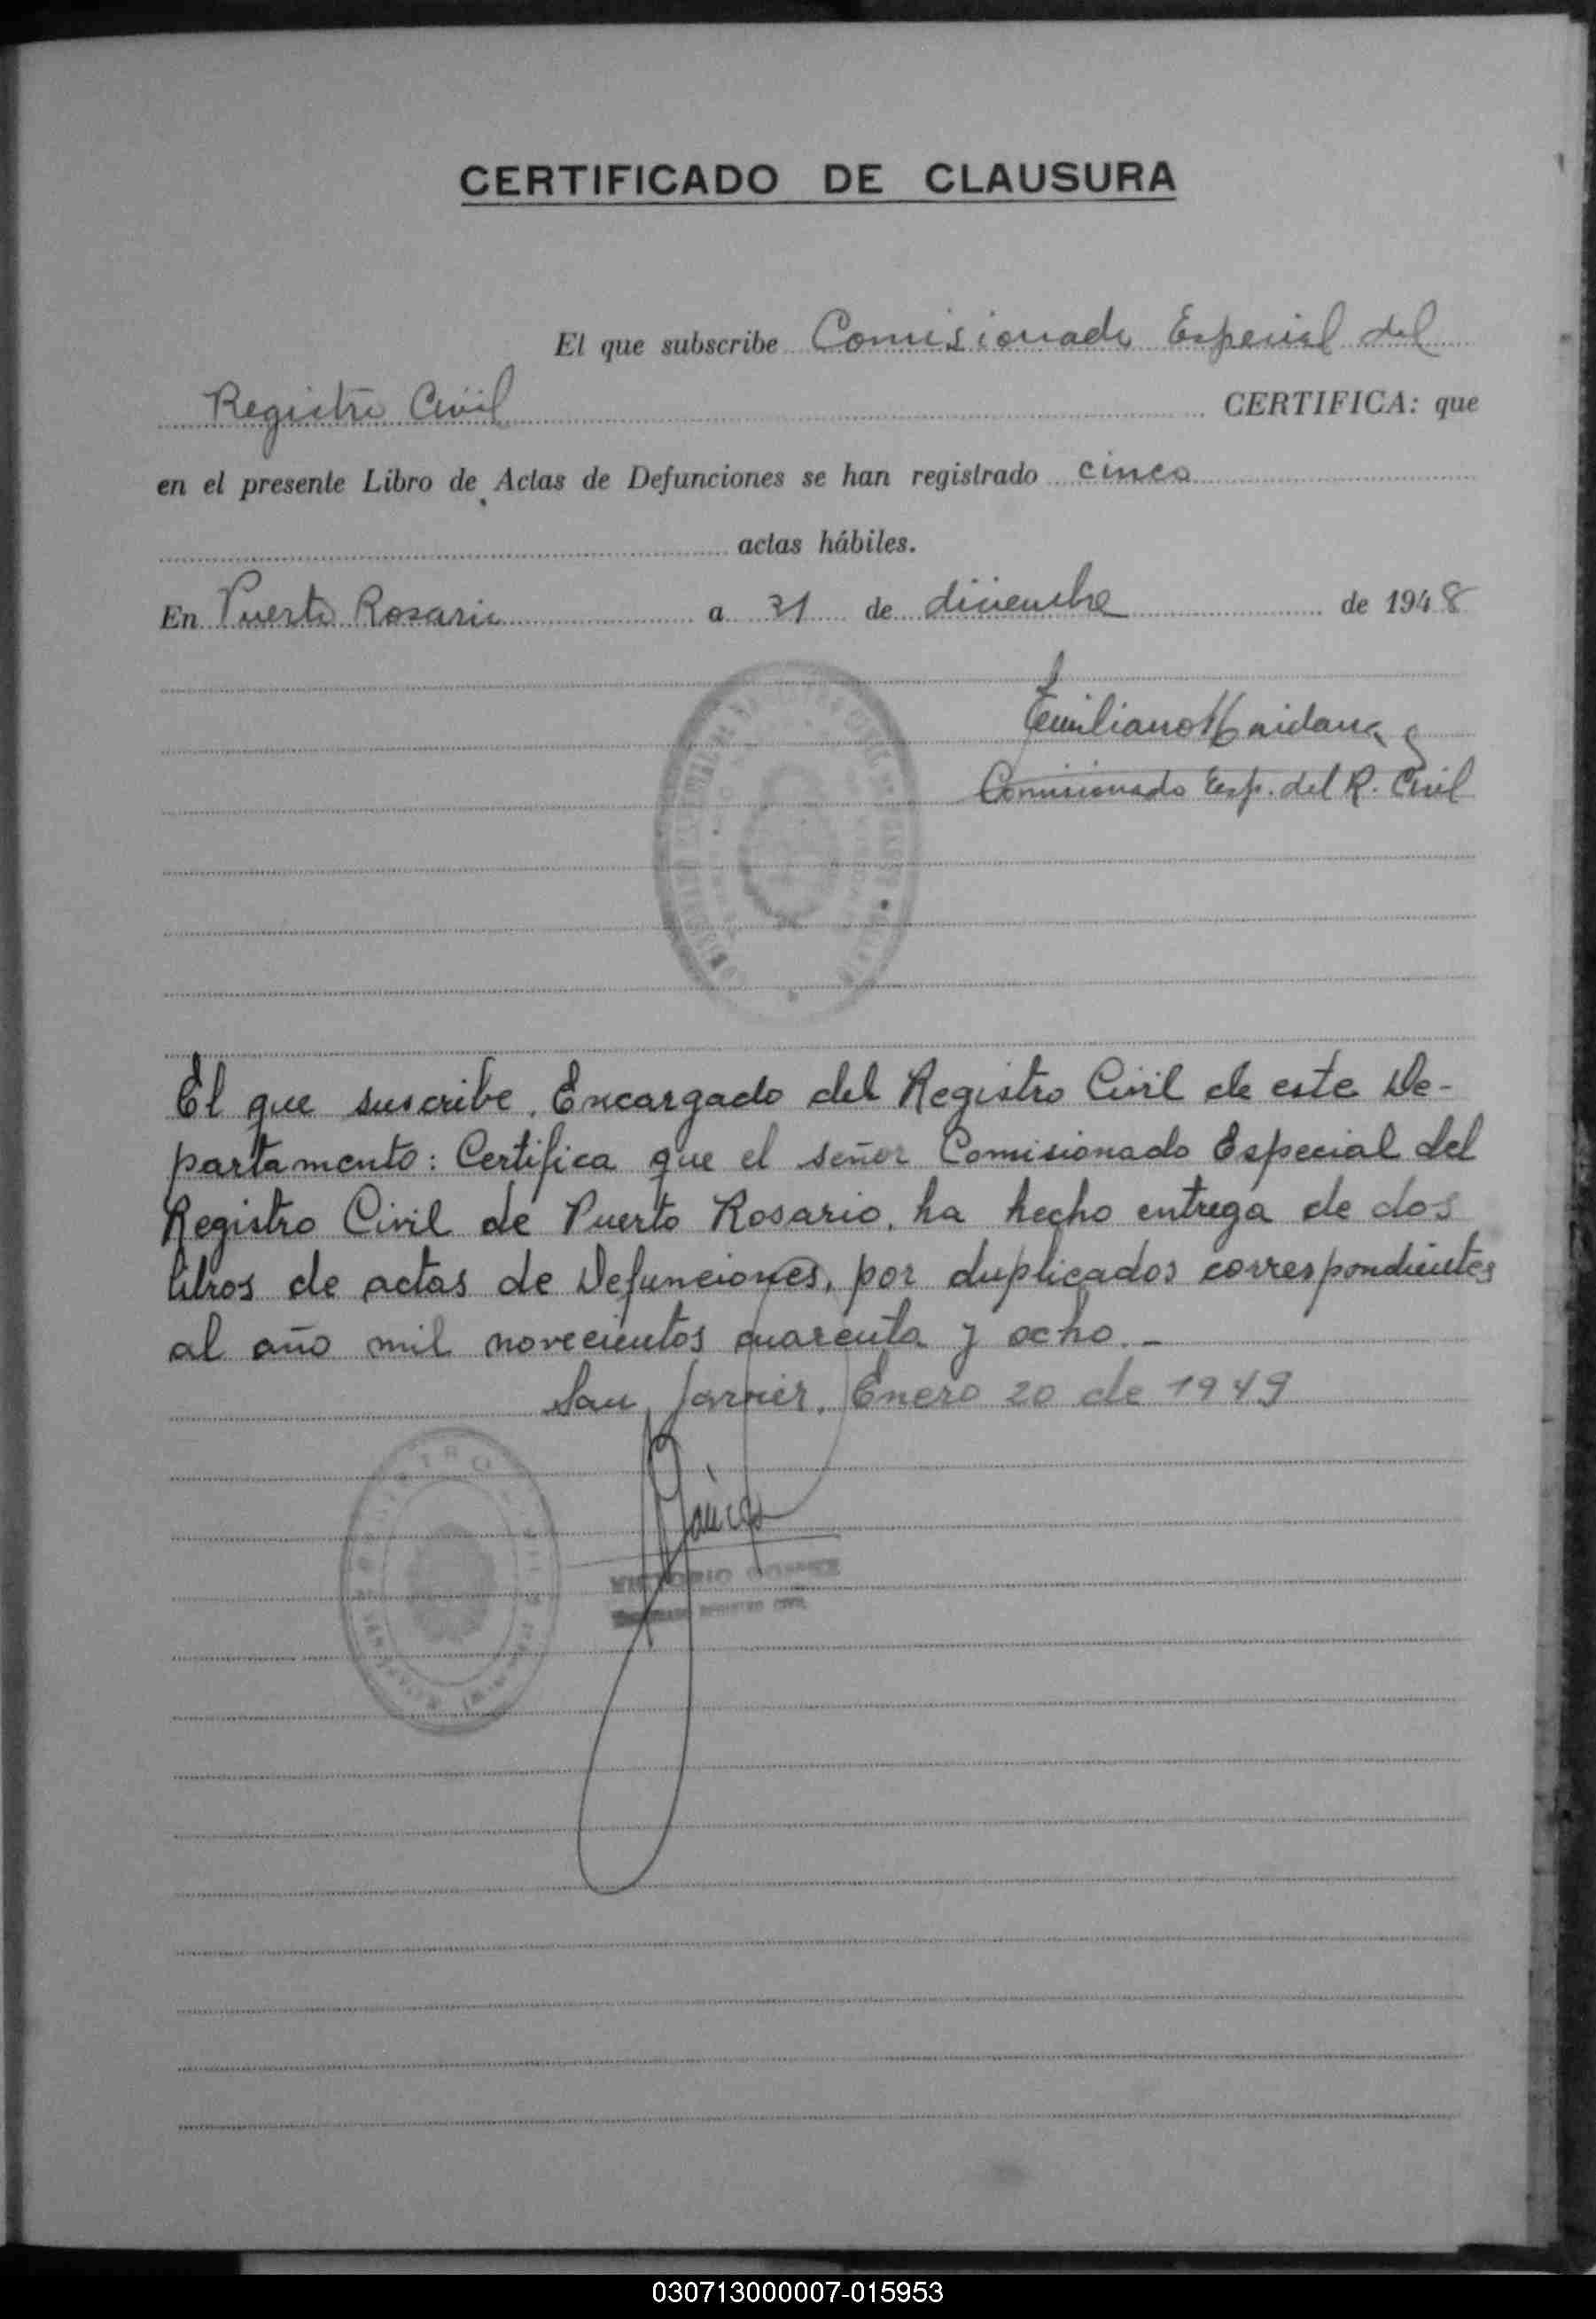 CERTIFICADO DE CLAUSURA
El que subscribe Comisionado Especial del
Registro Civil CERTIFICA: que
en el presente Libro de Actas de Defunciones se han registrado cinco
actas hábiles.
En Puerto Rosario a 31 de diciembre de 1948
Emiliano Maidana
Comisionado Esp. del R. Civil
El que suscribe, Encargado del Registro Civil de este De-
partamento: Certifica que el señor Comisionado Especial del
Registro Civil de Puerto Rosario, ha hecho entrega de dos
libros de actas de Defunciones, por duplicados correspondientes
al año mil novecientos cuarenta y ocho.-
San Javier, Enero 20 de 1949
VICTORIO GOMEZ
ENCARGADO REGISTRO CIVIL
030713000007-015953